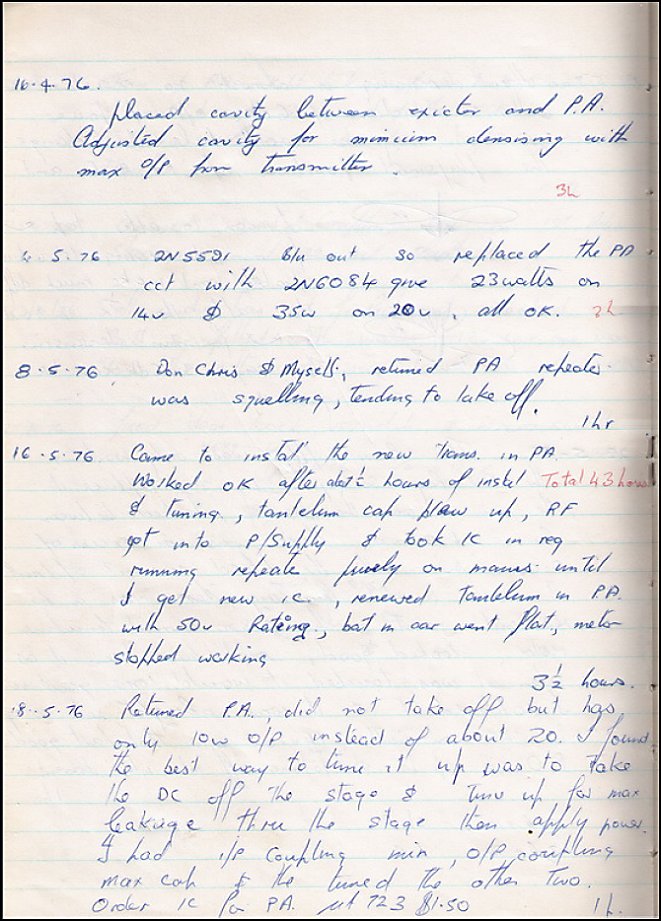 16.4.76.
placed cavity between exictor and P.A.
Adjusted cavity for minicim densising with
max O/P from transmitter.
3h
5.76 2N5591 Blu out so replaced the PA
cct with 2N6084 give 23watts on
14v & 35w on 20v, all OK. 3h
8.5.76 Don Chris & Myself, retuned PA repeater
was squelling, tending to take off.
1hr
16.5.76 Came to instal the new trans. in PA.
Worked OK after hours of instal Total 43 hours
& tuning, tantelum cap blew up, RF
got into P/Supply & took IC in reg
running repeate purely on mains until
I get new ic, renewed Tantelum in PA.
with 50v Rating, bat in car went flat, meter
stopped working
3½ hours.
8.5.76 Retuned P.A., did not take off but has
only 10w O/P instead of about 20. I found
the best way to tune it up was to take
the DC off the stage & tune up for max
leakage thru the stage then apply power.
I had i/p coupling min, O/P coupling
max cap & the tuned the other two.
Order IC for PA. 723 $1.50 1h.